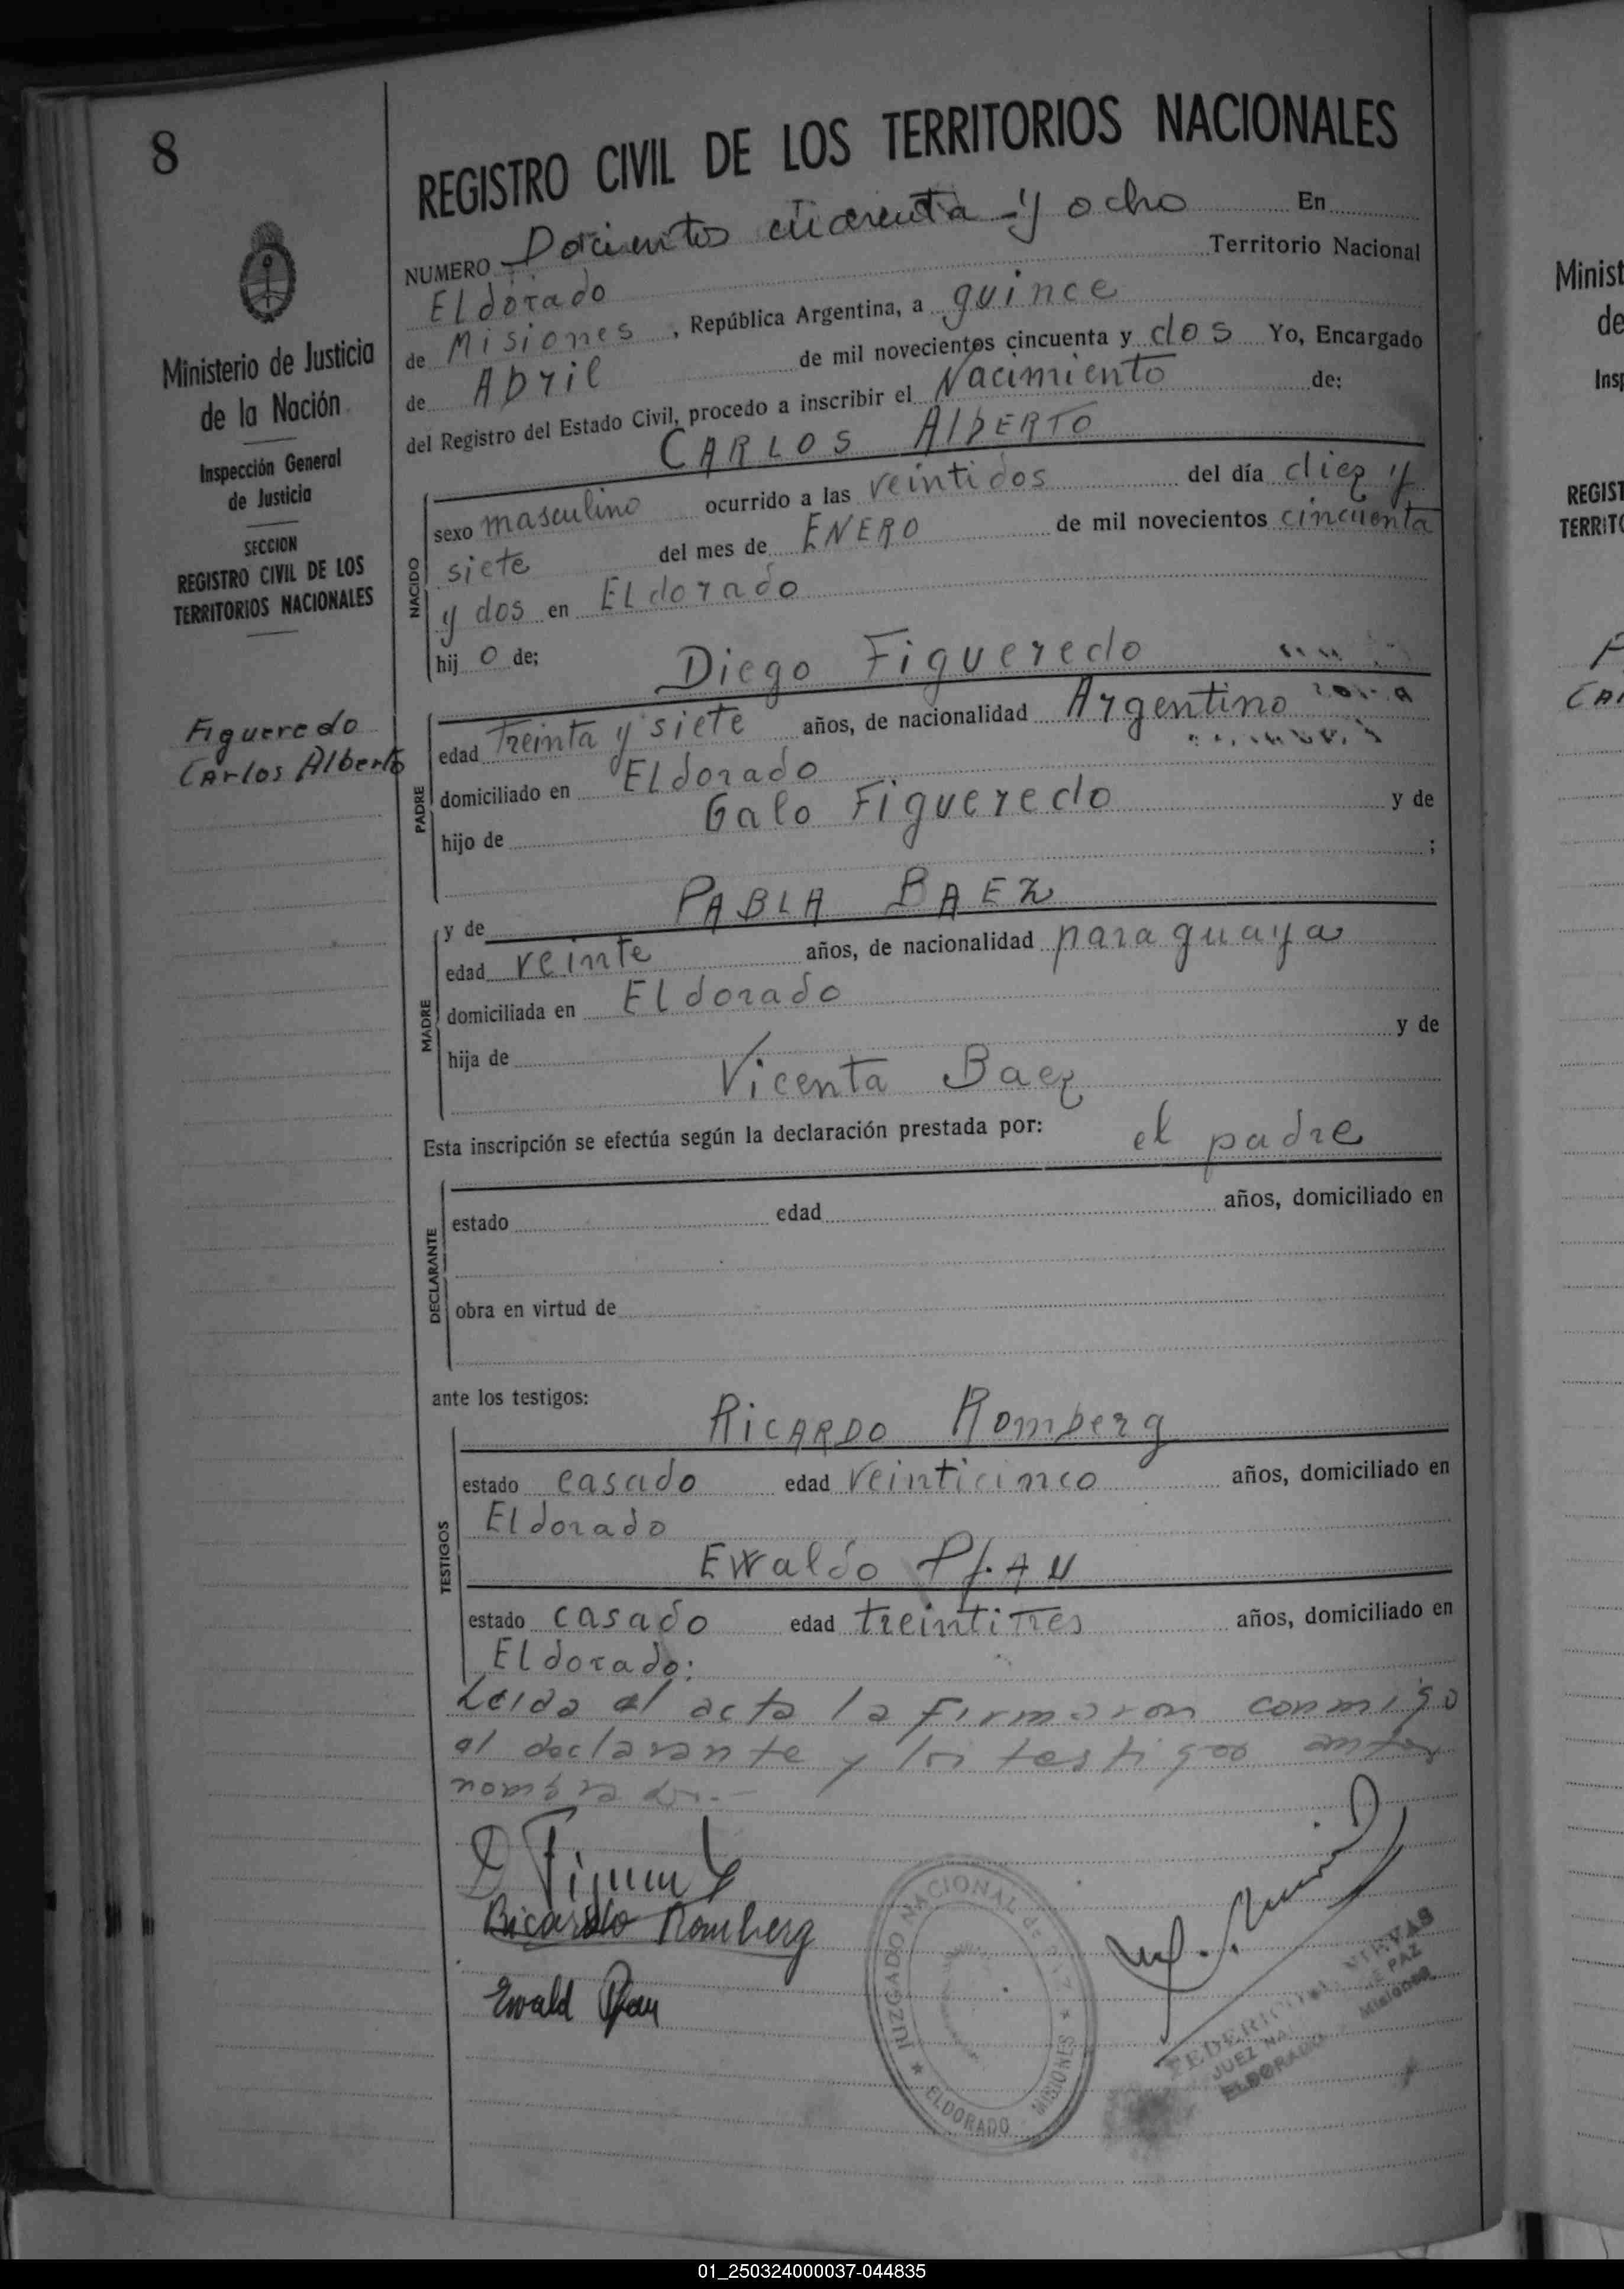 8
REGISTRO CIVIL DE LOS TERRITORIOS NACIONALES
Ministerio de Justicia
de la Nación
Inspección General
de Justicia
SECCION
REGISTRO CIVIL DE LOS
TERRITORIOS NACIONALES
Figueredo
Carlos Alberto
NUMERO Docientos cuarenta y ocho En
Eldorado Territorio Nacional
de Misiones, República Argentina, a quince
de Abril de mil novecientos cincuenta y dos Yo, Encargado
del Registro del Estado Civil, procedo a inscribir el Nacimiento de:
CARLOS AlbERTO
NACIDO
sexo masculino ocurrido a las veintidos del día diez y
siete del mes de ENERO de mil novecientos cincuenta
y dos en Eldorado
hij o de;
Diego Figueredo
PADRE
edad Treinta y siete años, de nacionalidad Argentino
domiciliado en Eldorado
hijo de Galo Figueredo y de
;
y de PABLA BAEZ
MADRE
edad veinte años, de nacionalidad paraguaya
domiciliada en Eldorado
hija de y de
Vicenta Baez
Esta inscripción se efectúa según la declaración prestada por: el padre
DECLARANTE
estado edad años, domiciliado en
obra en virtud de
ante los testigos:
RICARDO Romberg
TESTIGOS
estado casado edad veinticinco años, domiciliado en
Eldorado
Ewaldo PfAU
estado casado edad treintitres años, domiciliado en
Eldorado:
Leida el acta la firmaron conmigo
el declarante y los testigos antes
nombrados.-
Ricardo Romberg
Ewald Pfau
JUZGADO NACIONAL de PAZ
ELDORADO MISIONES
FEDERICO VIRVAS
JUEZ NA DE PAZ
ELDORADO Misiones
Minist
de
Insp
REGIST
TERRITO
F
CAr
01_250324000037-044835